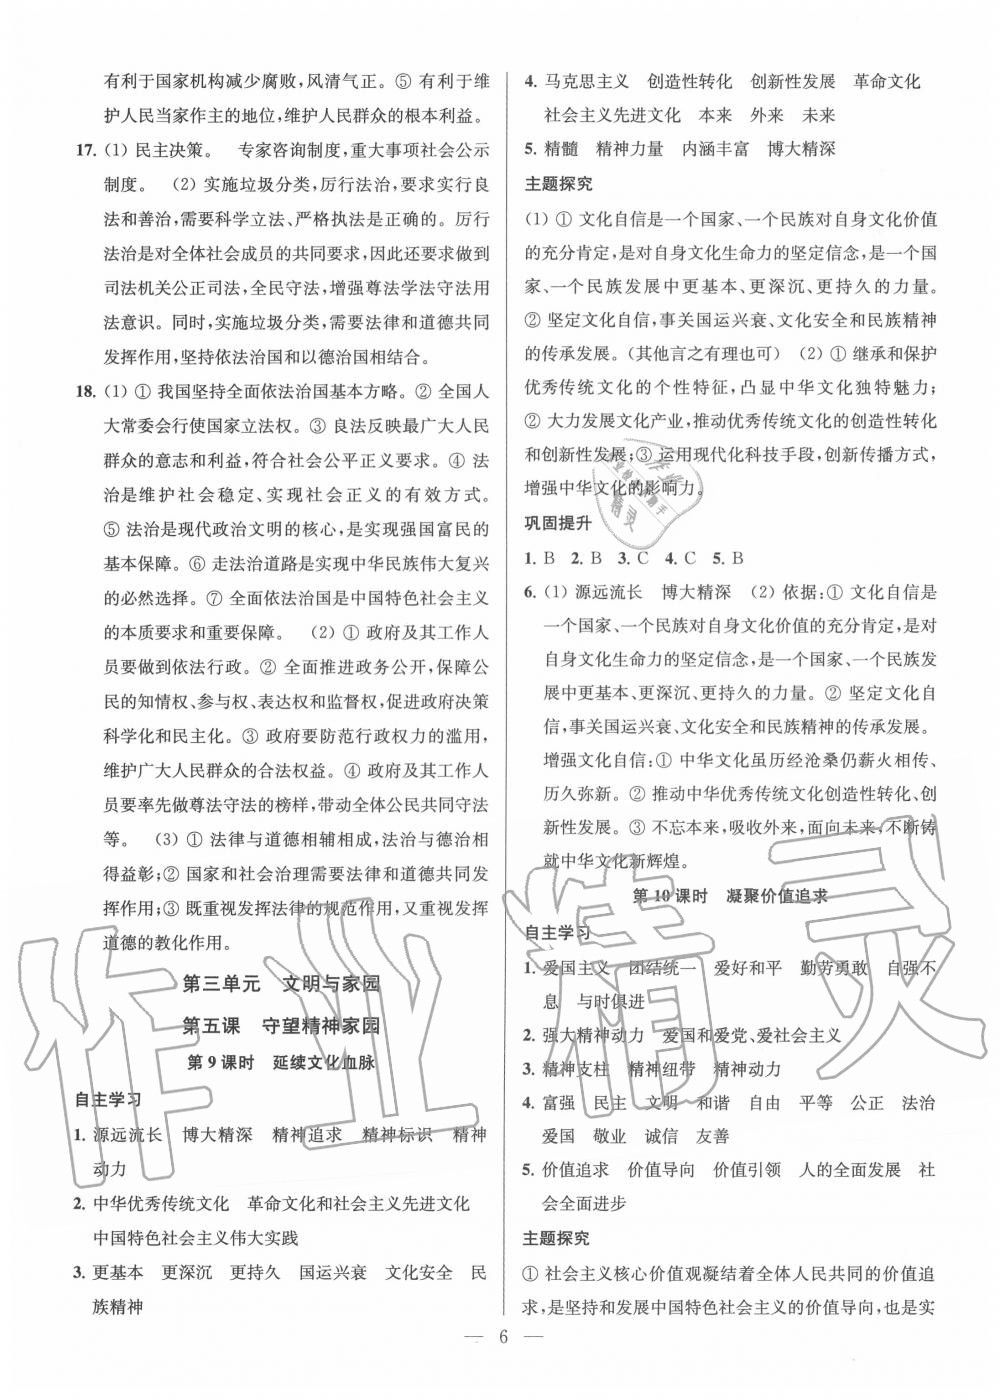 有利于国家机构减少腐败，风清气正。⑤ 有利于维
护人民当家作主的地位，维护人民群众的根本利益。
17. (1) 民主决策。 专家咨询制度，重大事项社会公示
制度。 (2) 实施垃圾分类，厉行法治，要求实行良
法和善治，需要科学立法、严格执法是正确的。厉行
法治是对全体社会成员的共同要求，因此还要做到
司法机关公正司法，全民守法，增强尊法学法守法用
法意识。同时，实施垃圾分类，需要法律和道德共同
发挥作用，坚持依法治国和以德治国相结合。
18. (1) ① 我国坚持全面依法治国基本方略。② 全国人
大常委会行使国家立法权。③ 良法反映最广大人民
群众的意志和利益，符合社会公平正义要求。④ 法
治是维护社会稳定、实现社会正义的有效方式。
⑤ 法治是现代政治文明的核心，是实现强国富民的
基本保障。⑥ 走法治道路是实现中华民族伟大复兴
的必然选择。⑦ 全面依法治国是中国特色社会主义
的本质要求和重要保障。 (2) ① 政府及其工作人
员要做到依法行政。② 全面推进政务公开，保障公
民的知情权、参与权、表达权和监督权，促进政府决策
科学化和民主化。③ 政府要防范行政权力的滥用，
维护广大人民群众的合法权益。④ 政府及其工作人
员要率先做尊法守法的榜样，带动全体公民共同守法
等。 (3) ① 法律与道德相辅相成，法治与德治相
得益彰；② 国家和社会治理需要法律和道德共同发
挥作用；③ 既重视发挥法律的规范作用，又重视发挥
道德的教化作用。
第三单元 文明与家园
第五课 守望精神家园
第 9 课时 延续文化血脉
自主学习
1. 源远流长 博大精深 精神追求 精神标识 精神
动力
2. 中华优秀传统文化 革命文化和社会主义先进文化
中国特色社会主义伟大实践
3. 更基本 更深沉 更持久 国运兴衰 文化安全 民
族精神
4. 马克思主义 创造性转化 创新性发展 革命文化
社会主义先进文化 本来 外来 未来
5. 精髓 精神力量 内涵丰富 博大精深
主题探究
(1) ① 文化自信是一个国家、一个民族对自身文化价值
的充分肯定，是对自身文化生命力的坚定信念，是一个国
家、一个民族发展中更基本、更深沉、更持久的力量。
② 坚定文化自信，事关国运兴衰、文化安全和民族精神
的传承发展。(其他言之有理也可) (2) ① 继承和保护
优秀传统文化的个性特征，凸显中华文化独特魅力；
② 大力发展文化产业，推动优秀传统文化的创造性转化
和创新性发展；③ 运用现代化科技手段，创新传播方式，
增强中华文化的影响力。
巩固提升
1. B 2. B 3. C 4. C 5. B
6. (1) 源远流长 博大精深 (2) 依据：① 文化自信是
一个国家、一个民族对自身文化价值的充分肯定，是对
自身文化生命力的坚定信念，是一个国家、一个民族发
展中更基本、更深沉、更持久的力量。② 坚定文化自
信，事关国运兴衰、文化安全和民族精神的传承发展。
增强文化自信：① 中华文化虽历经沧桑仍薪火相传、
历久弥新。② 推动中华优秀传统文化创造性转化、创
新性发展。③ 不忘本来，吸收外来，面向未来，不断铸
就中华文化新辉煌。
第 10 课时 凝聚价值追求
自主学习
1. 爱国主义 团结统一 爱好和平 勤劳勇敢 自强不
息 与时俱进
2. 强大精神动力 爱国和爱党、爱社会主义
3. 精神支柱 精神纽带 精神动力
4. 富强 民主 文明 和谐 自由 平等 公正 法治
爱国 敬业 诚信 友善
5. 价值追求 价值导向 价值引领 人的全面发展 社
会全面进步
主题探究
① 社会主义核心价值观凝结着全体人民共同的价值追
求，是坚持和发展中国特色社会主义的价值导向，也是实
— 6 —
作业精灵